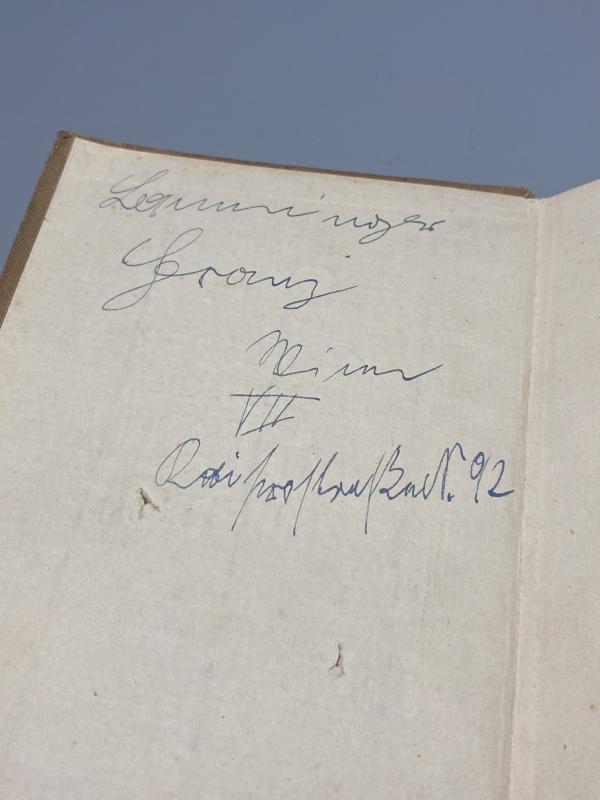 Lemminger
Franz
Wien
VII
Kaiserstraße Nr. 92